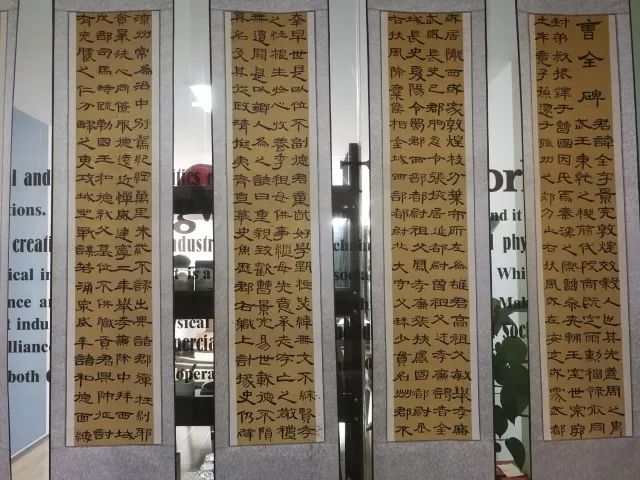 曹全碑
君諱全字景完敦煌效穀人也其先蓋周之胄
武王秉乾之機翦伐殷商既定爾勳福祿攸同
封弟叔振鐸于曹國因氏焉秦漢之際曹參夾輔王室世宗廓
土斥竟子孫遷于雍州之郊分止右扶風或在安定或處武都
或居隴西或家敦煌枝分葉布所在為雄君高祖父敏舉孝廉
武威長史巴郡朐忍令張掖居延都尉曾祖父述孝廉謁者金
城長史夏陽令蜀郡西部都尉祖父鳳孝廉張掖屬國都尉丞
右扶風隃麋侯相金城西部都尉北地太守父琫少貫名州郡不
幸早世是以位不副德君童齔好學甄極毖緯無文不綜賢孝
之性根生於心收養季祖母供事繼母先意承志存亡之敬禮
無遺闕是以鄉人為之諺曰重親致歡曹景完易世載德不隕
其名及其從政清擬夷齊直慕史魚歷郡右職上計掾史仍辟
涼州常為治中別駕紀綱萬里朱紫不謬出典諸郡彈枉糾邪
貪暴洗心同僚服德遠近憚威建寧二年舉孝廉除郎中拜西域
戊部司馬時疏勒國王和德弒父篡位不供職貢君興師征討
有兗膿之仁分醪之惠攻城野戰謀若涌泉威牟諸賁和德面縛